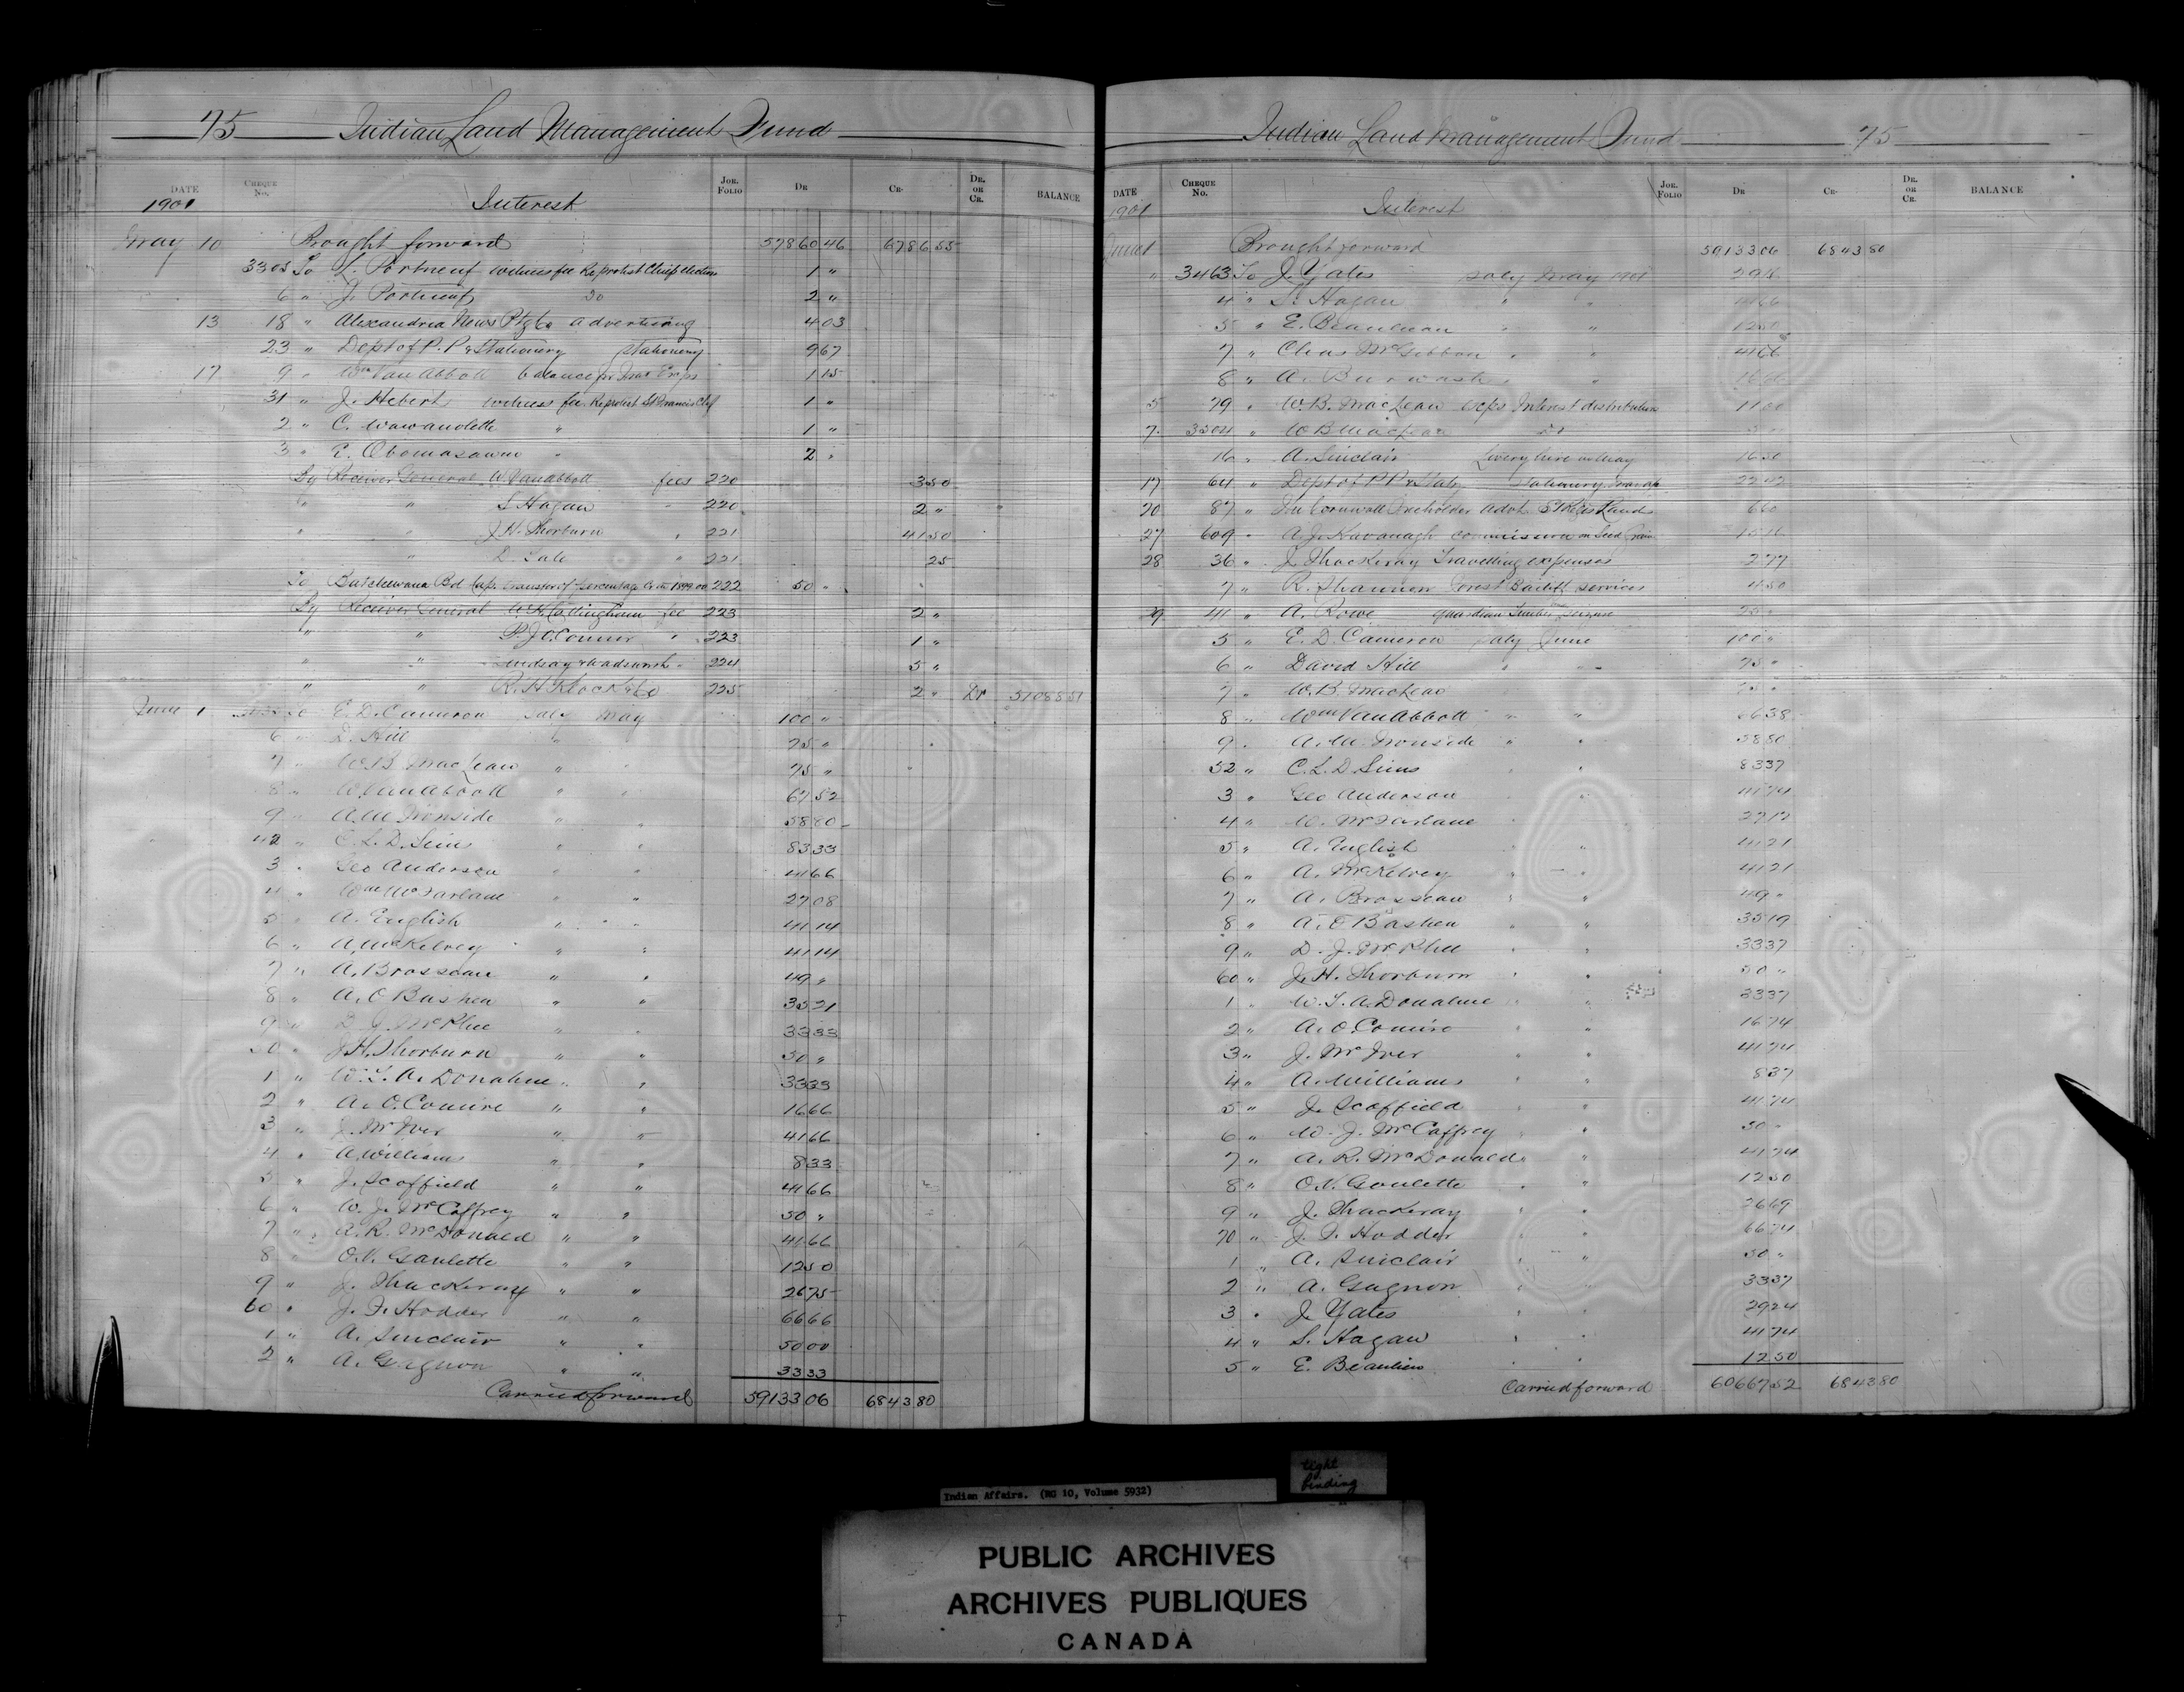 75 Indian Land Management Fund
DATE CHEQUE No. JOR. FOLIO DR CR. DR. OR CR. BALANCE
1901 Interest
May 10 Brought forward 57860 46 6786 55
3305 To L. Portneuf witness fee Re protest Chief election 1 "
6 " J. Portneuf Do 2 "
13 18 " Alexandria News Ptg Co advertising 4 03
23 " Dept of P. P & Stationery stationery 9 67
17 9 " Wm Van Abbott balance 1 15
31 " J. Hebert witness fee Re protest St Francis Chf 1 "
2 " C. Wawanolette " 1 "
3 " E. Obomasawin " 2 "
By Receiver General W. Van Abbott fees 220 3 50
" " S Hagan " 220 2 "
" " J. H. Thorburn " 221 41 50
" " " 221 25
To Batchewana Bd Cap. transfer of percentage 222 50 "
By Receiver General fee 223 2 "
" " P. J O'Connor " 223 1 "
" " Lindsay & Wadsworth " 224 5 "
" " R. H. Klock & Co 225 2 " Dr 51088 51
June 1 To E. D. Cameron saly May 100 "
6 " D. Hill " 75 "
7 " W. B MacLean " " 75 "
8 " W. Van Abbott " " 67 52
9 " A. M Ironside " " 58 80
42 " C. L. D. Sims " " 83 33
3 " Geo Anderson " " 41 66
4 " Wm McFarlane " " 27 08
5 " A. English " " 41 14
6 " A. McKelvey " " 41 14
7 " A. Brosseau " " 49 "
8 " A. O Bashea " " 35 21
9 " D. J. McPhee " " 33 33
50 " J. H. Thorburn " " 50 "
1 " W. T. A. Donahue " " 33 33
2 " A. O. Comire " " 16 66
3 " J. McIver " " 41 66
4 " A. Williams " " 8 33
5 " J. Scoffield " " 41 66
6 " W. J. McCaffrey " " 50 "
7 " A. R. McDonald " " 41 66
8 " O. V. Goulette " " 12 50
9 " J. Thackeray " " 26 75
60 " J. F. Hodder " " 66 66
1 " A. Sinclair " " 50 00
2 " A. Gagnon " " 33 33
Carried forward 59133 06 6843 80
Indian Land Management Fund 75
DATE CHEQUE No. JOR. FOLIO DR CR. DR. OR CR. BALANCE
1901 Interest
June 1 Brought forward 59133 06 6843 80
" 3463 To J. Yates saly May 1901 29 16
4 " S. Hagan " " 41 66
5 " E. Beaulieau " " 12 50
7 " Chas McGibbon " " 41 66
8 " A. Burwash " " 16 66
5 79 " W. B. MacLean exps Interest distribution 11 00
7 3504 " W B MacLean Do
16 " A. Sinclair Livery hire 16 50
17 64 " Dept of P P & Staty Stationery 22 42
20 87 " The Cornwall Freeholder advt. St Regis Lands 6 60
27 609 " A. J. Kavanagh commission on Seed Grain
28 36 " J. Thackeray Travelling expenses 2 77
7 " R. Shannon Forest Bailiff services 4 50
29 41 " A. Rowe guardian Timber seizure
5 " E. D. Cameron saly June 100 "
6 " David Hill " " 75 "
7 " W. B. MacLean 75 "
8 " Wm Van Abbott " " 66 38
9 " A. M. Ironside " " 58 80
52 " C. L. D. Sims " " 83 37
3 " Geo Anderson " 41 74
4 " W. McFarlane " 27 12
5 " A. English " " 41 21
6 " A. McKelvey " " 41 21
7 " A. Brosseau " " 49 "
8 " A. O Bashea " " 35 19
9 " D. J. McPhee " " 33 37
60 " J. H. Thorburn " " 50 "
1 " W. T. A. Donahue " " 33 37
2 " A. O. Comire " " 16 74
3 " J. McIver " " 41 74
4 " A. Williams " " 8 37
5 " J. Scoffield " " 41 74
6 " W. J. McCaffrey " " 50 "
7 " A. R. McDonald " " 41 74
8 " O. V. Goulette " " 12 50
9 " J. Thackeray " " 26 69
70 " J. F. Hodder " " 66 74
1 " A. Sinclair " " 50 "
2 " A. Gagnon " " 33 37
3 " J. Yates " " 29 24
4 " S. Hagan " " 41 74
5 " E. Beaulieu " " 12 50
Carried forward 60667 52 6843 80
Indian Affairs. (RG 10, Volume 5932)
tight
binding
PUBLIC ARCHIVES
ARCHIVES PUBLIQUES
CANADA